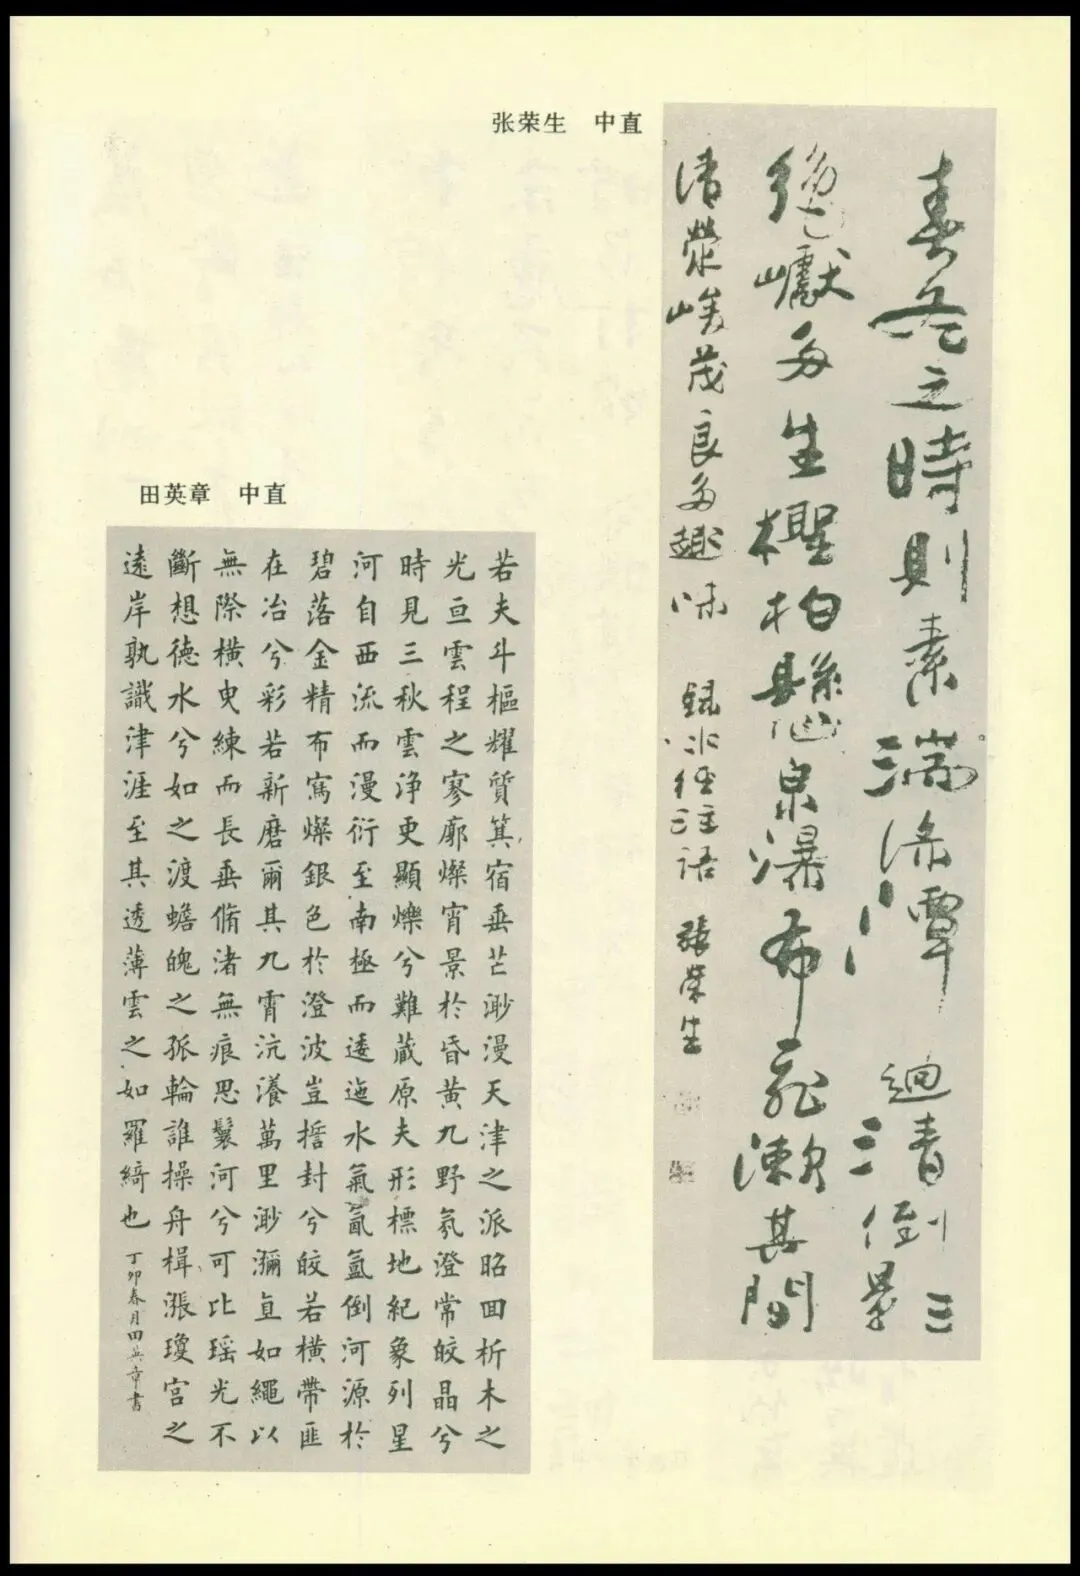 张荣生　中直
春冬之時則素湍淥潭迴清倒景
絕巘多生檉柏懸泉瀑布飛漱其間
清榮峻茂良多趣味 録水经注语 張荣生
田英章　中直
若夫斗樞耀質箕宿垂芒渺漫天津之派昭回析木之
光亘雲程之寥廓燦宵景於昏黄九野氛澄常皎晶兮
時見三秋雲浄更顯爍兮難藏原夫形標地紀象列星
河自西流而漫衍至南極而逶迤水氣氤氳倒河源於
碧落金精布寫燦銀色於澄波豈封兮皎若橫帶匪
在冶兮彩若新磨爾其九霄沆瀁萬里渺瀰直如繩以
無際橫曳練而長垂脩渚無痕思鬟河兮可比瑤光不
斷想德水兮如之渡蟾魄之孤輪誰操舟楫漲瓊宫之
遠岸孰識津涯至其透薄雲之如羅綺也 丁卯春月田英章書